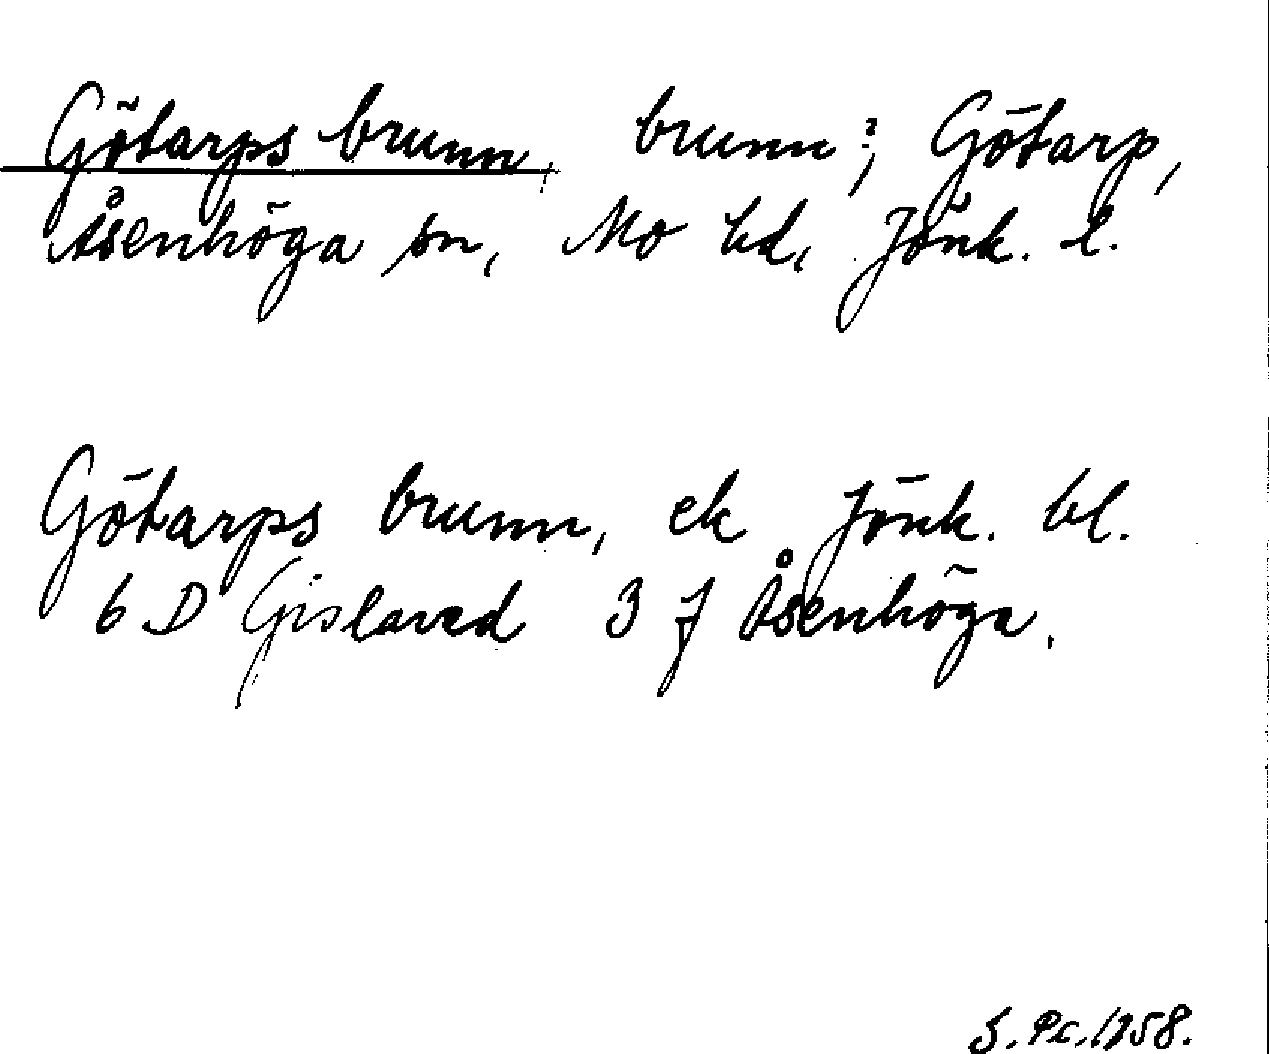 Götarps brunn, brunn?, Götarp,
Åsenhöga sn, Mo hd, Jönk. l.
Götarps brunn, ek Jönk. bl.
6 D Gislaved 3 f Åsenhöga.
1958.